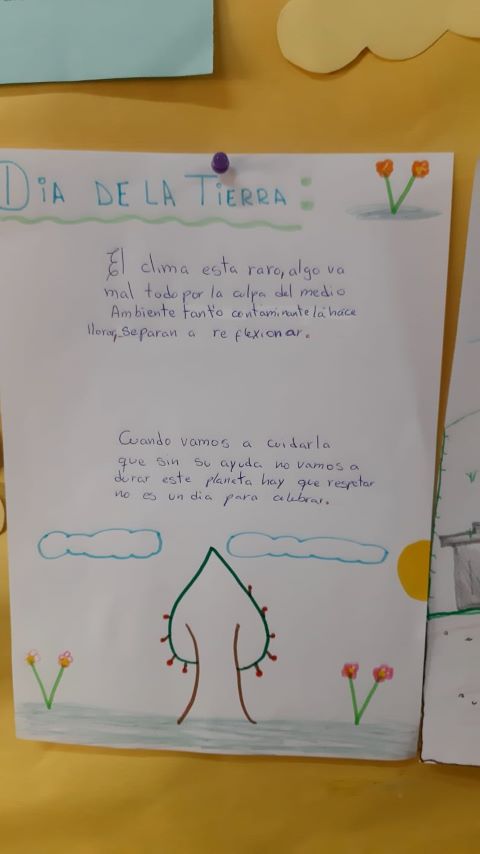 DIA DE LA TIERRA:
El clima esta raro, algo va
mal todo por la culpa del medio
Ambiente tanto contaminante lá hace
llorar, separan a reflexionar.
Cuando vamos a cuidarla
que sin su ayuda no vamos a
durar este planeta hay que respetar
no es un dia para celebrar.